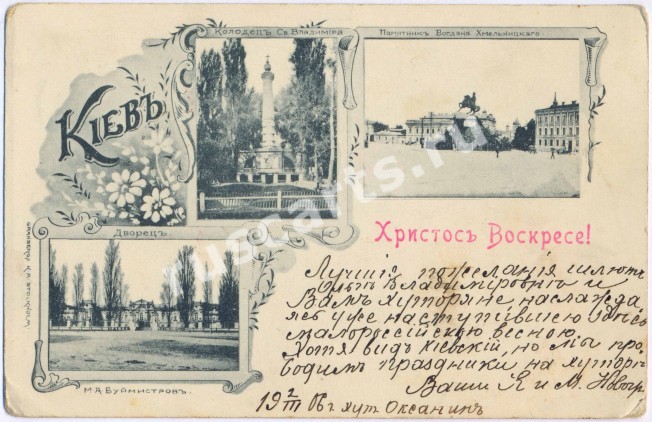 Колодецъ Св. Владимiра
Памятникъ Богдана Хмельницкаго.
Кiевъ
Дворецъ.
М. А. Буймистровъ.
Христосъ Воскресе!
Лучшiя пожеланiя шлютъ
Владимировнѣ и
Вамъ хуторяне, наслажда
ясь уже наступившею здѣсь
малороссiйскую весною.
Хотя видъ кiевскiй, но мы про-
водимъ праздники на хуторѣ
Ваши Я и М.
19 2/III 06 хут Оксанинъ
ruscarts.ru